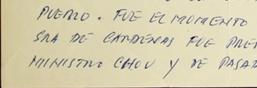 PUEBLO. FUE EL MOMENTO
SRA DE CARDENAS FUE PRE
MINISTRO CHOU Y DE PASA